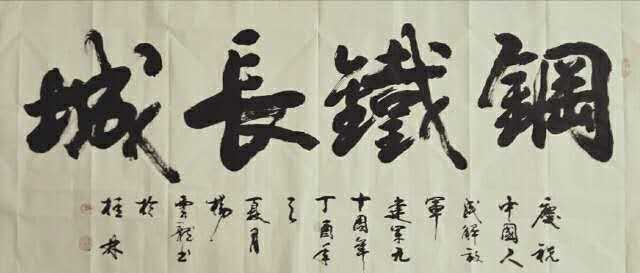 鋼鐵長城
慶祝
中國人
民解放
軍
建軍九
十周年
丁酉年
之
夏月
楊
雲龍书
於
桂林